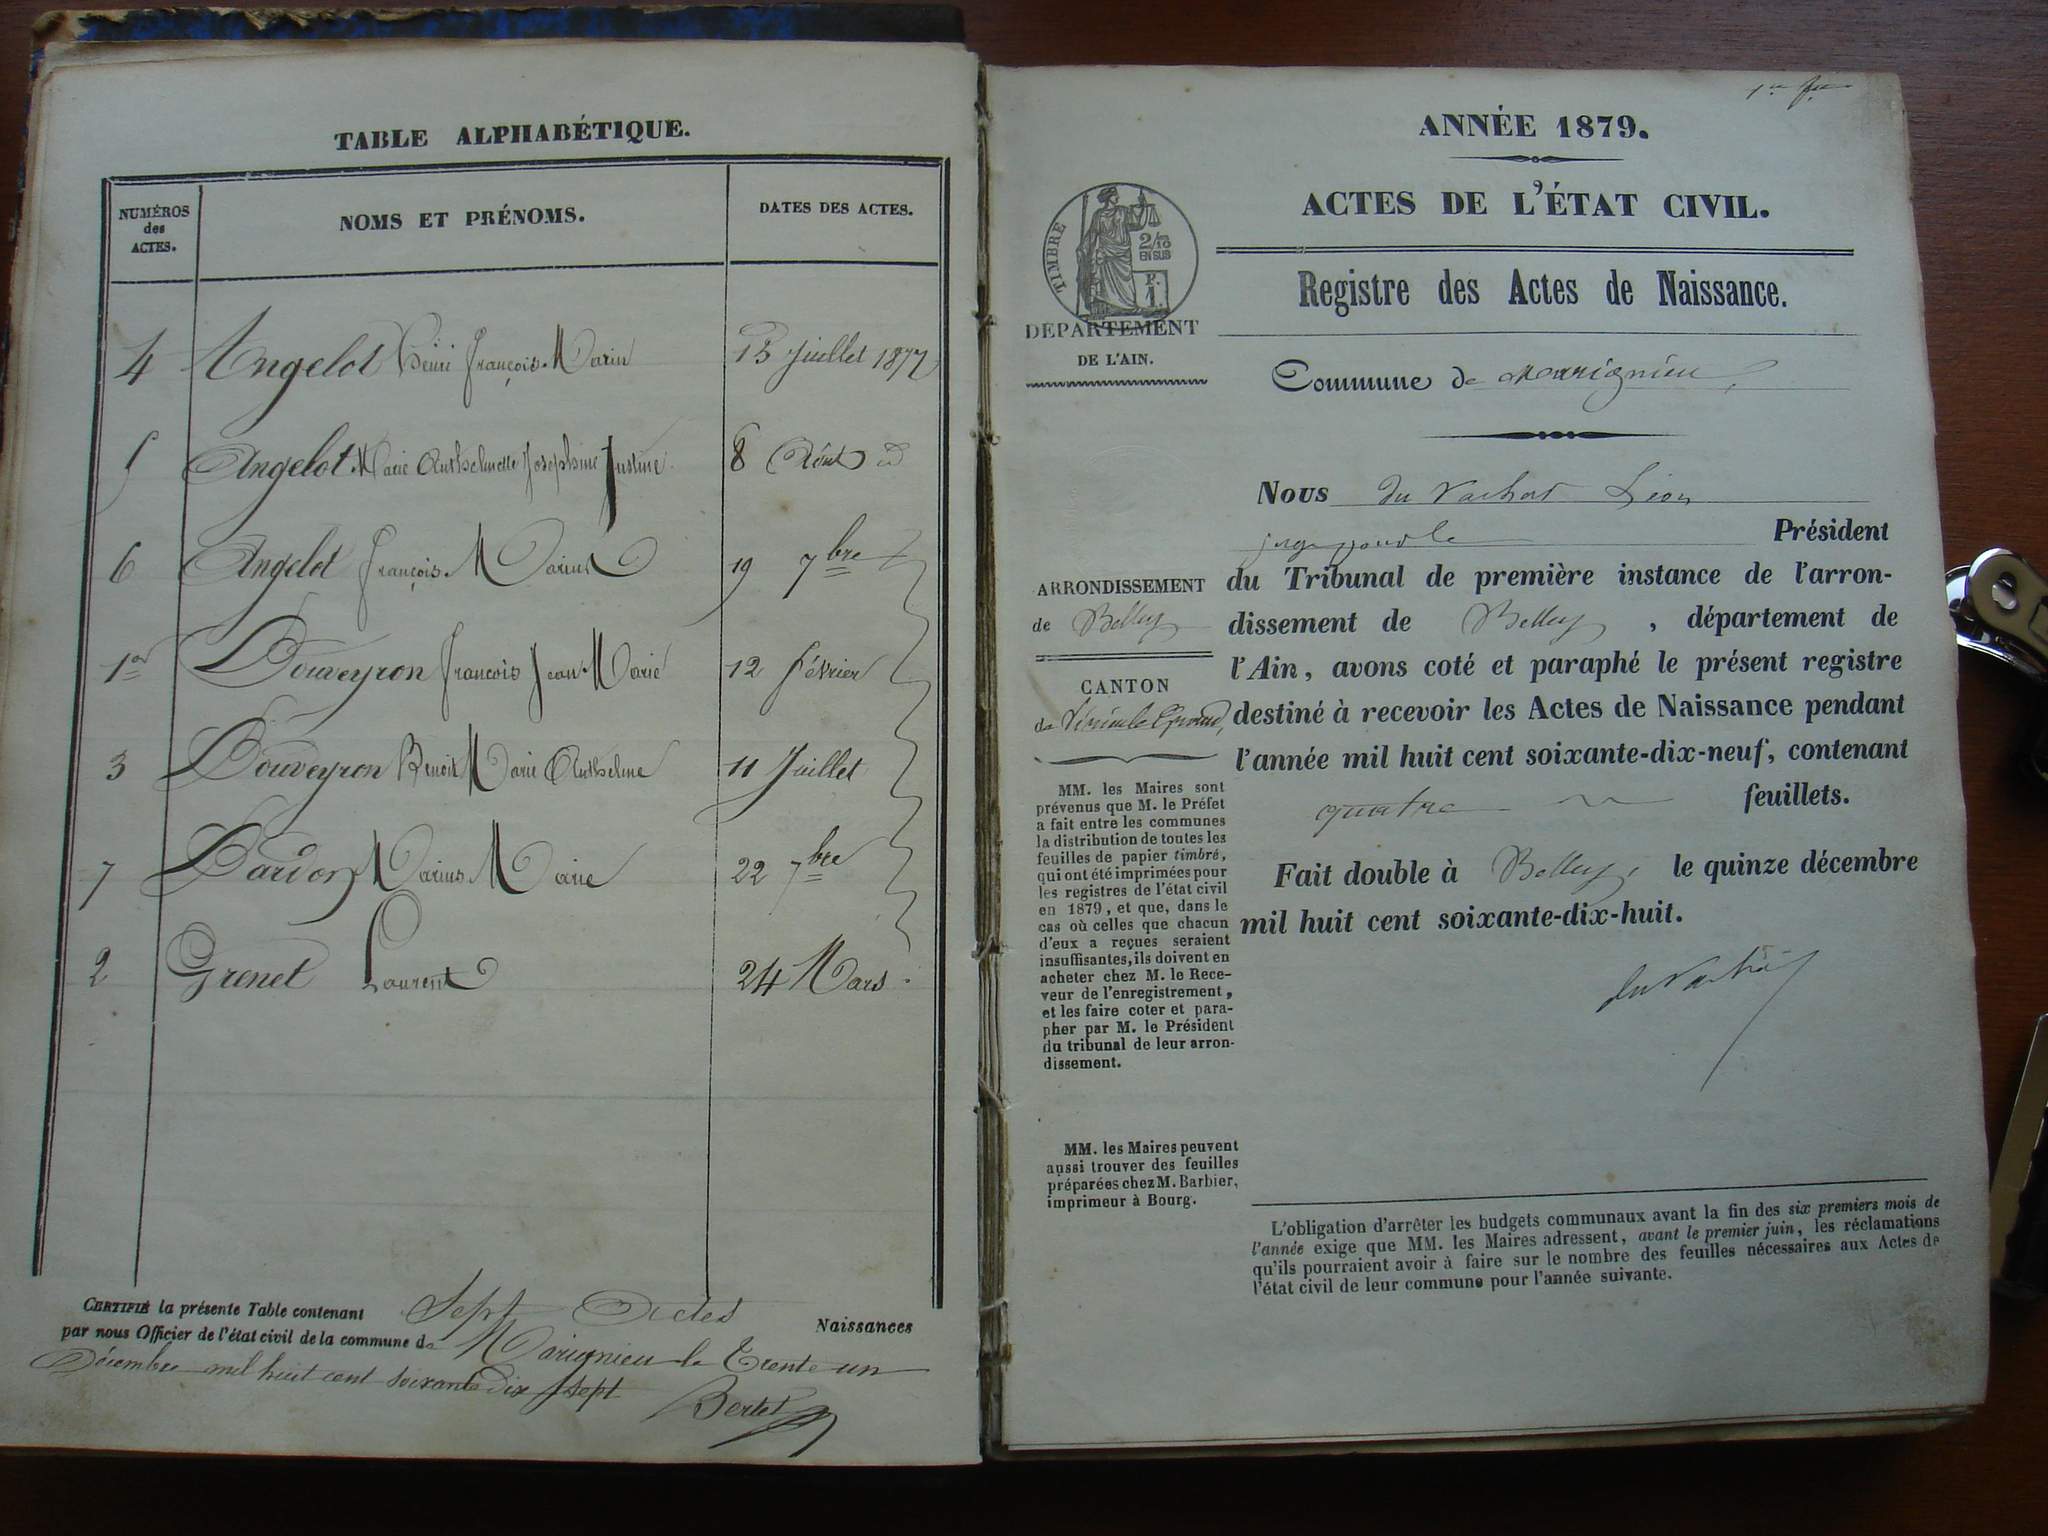 TABLE ALPHABÉTIQUE.
NUMÉROS des ACTES.
NOMS ET PRÉNOMS.
DATES DES ACTES.
4 Angelot Henri François Marin 15 Juillet 1877
5 Angelot Marie Anthelmette Josephine Justine 8 Août
6 Angelot François Marius 19 7bre
1er Douveyron François Jean Marie 12 février
3 Douveyron Benoit Marie Anthelme 11 Juillet
7 Pardon Marius Marie 22 7bre
2 Grenet Laurent 24 Mars
CERTIFIÉ la présente Table contenant Sept Actes Naissances
par nous Officier de l'état civil de la commune de Marignieu le Trente un
Décembre mil huit cent soixante dix sept
Bertet
ANNÉE 1879.
ACTES DE L'ÉTAT CIVIL.
TIMBRE
2/10 EN SUB
F. 1.
DÉPARTEMENT
DE L'AIN.
Registre des Actes de Naissance.
Commune de Marignieu
Nous du Vachat Léon
Président
ARRONDISSEMENT
de Belley
CANTON
de Virieu le Grand,
du Tribunal de première instance de l'arron-
dissement de Belley, département de
l'Ain, avons coté et paraphé le présent registre
destiné à recevoir les Actes de Naissance pendant
l'année mil huit cent soixante-dix-neuf, contenant
quatre feuillets.
Fait double à Belley, le quinze décembre
mil huit cent soixante-dix-huit.
du Vachat
MM. les Maires sont
prévenus que M. le Préfet
a fait entre les communes
la distribution de toutes les
feuilles de papier timbré,
qui ont été imprimées pour
les registres de l'état civil
en 1879, et que, dans le
cas où celles que chacun
d'eux a reçues seraient
insuffisantes, ils doivent en
acheter chez M. le Rece-
veur de l'enregistrement,
et les faire coter et para-
pher par M. le Président
du tribunal de leur arron-
dissement.
MM. les Maires peuvent
aussi trouver des feuilles
préparées chez M. Barbier,
imprimeur à Bourg.
L'obligation d'arrêter les budgets communaux avant la fin des six premiers mois de
l'année exige que MM. les Maires adressent, avant le premier juin, les réclamations
qu'ils pourraient avoir à faire sur le nombre des feuilles nécessaires aux Actes de
l'état civil de leur commune pour l'année suivante.